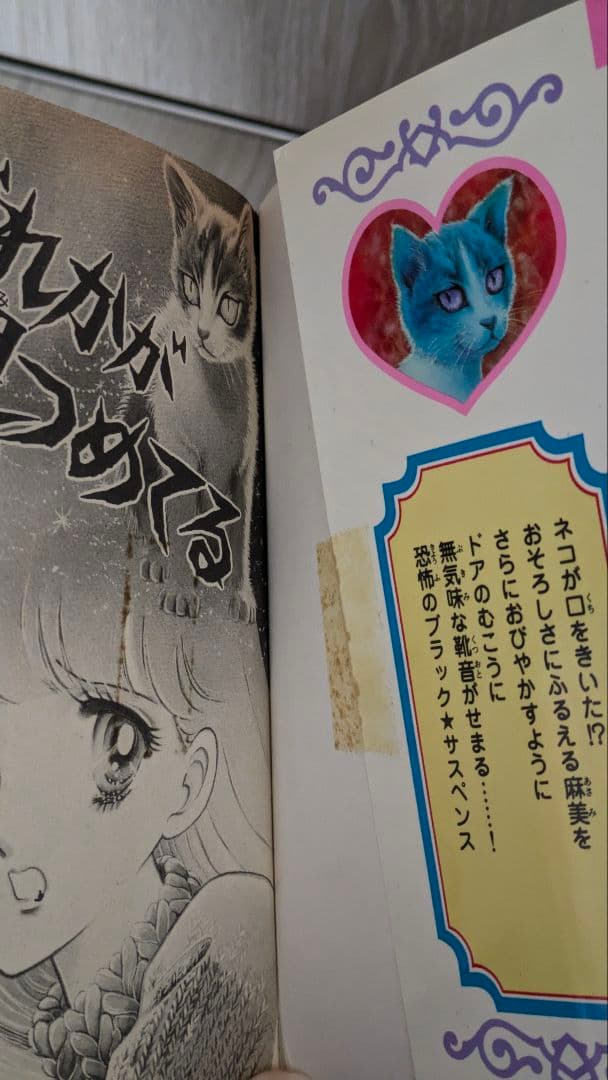 れかが
つめてる
ネコが口をきいた!?
おそろしさにふるえる麻美を
さらにおびやかすように
ドアのむこうに
無気味な靴音がせまる……!
恐怖のブラック★サスペンス